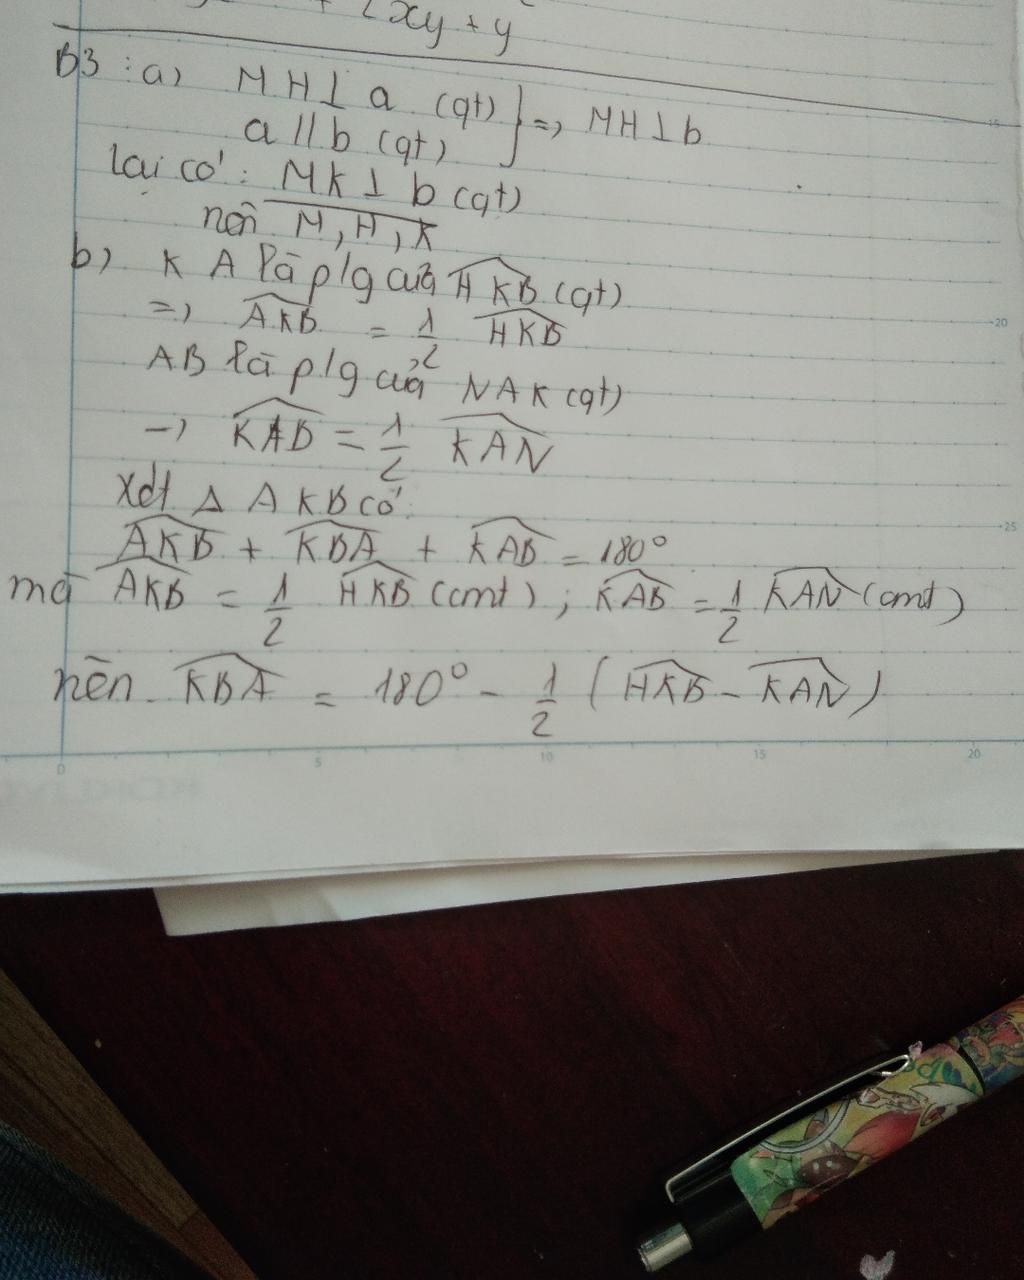 + 2xy + y
B3 : a) MH ⊥ a (gt) } => MH ⊥ b
a // b (gt)
lại có : MK ⊥ b (gt)
nên M, H, K
b) KA là p/g của HKB (gt)
=> AKB = 1/2 HKB
AB là p/g của NAK (gt)
=> KAB = 1/2 KAN
xét Δ AKB có:
AKB + KBA + KAB = 180°
mà AKB = 1/2 HKB (cmt) ; KAB = 1/2 KAN (cmt)
nên KBA = 180° - 1/2 (HKB - KAN)
15
20
25
0 5 10 15 20